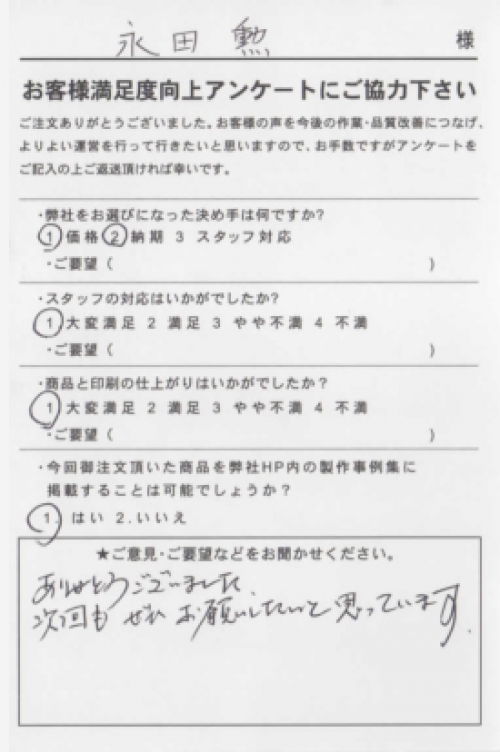 永田 勲 様
お客様満足度向上アンケートにご協力下さい
ご注文ありがとうございました。お客様の声を今後の作業・品質改善につなげ、
よりよい運営を行って行きたいと思いますので、お手数ですがアンケートを
ご記入の上ご返送頂ければ幸いです。
・弊社をお選びになった決め手は何ですか?
1 価格 2 納期 3 スタッフ対応
・ご要望 ( )
・スタッフの対応はいかがでしたか?
1 大変満足 2 満足 3 やや不満 4 不満
・ご要望 ( )
・商品と印刷の仕上がりはいかがでしたか?
1 大変満足 2 満足 3 やや不満 4 不満
・ご要望 ( )
・今回御注文頂いた商品を弊社HP内の製作事例集に
掲載することは可能でしょうか?
1. はい 2.いいえ
★ご意見・ご要望などをお聞かせください。
ありがとうございました.
次回も ぜひ お願いしたいと思っています.